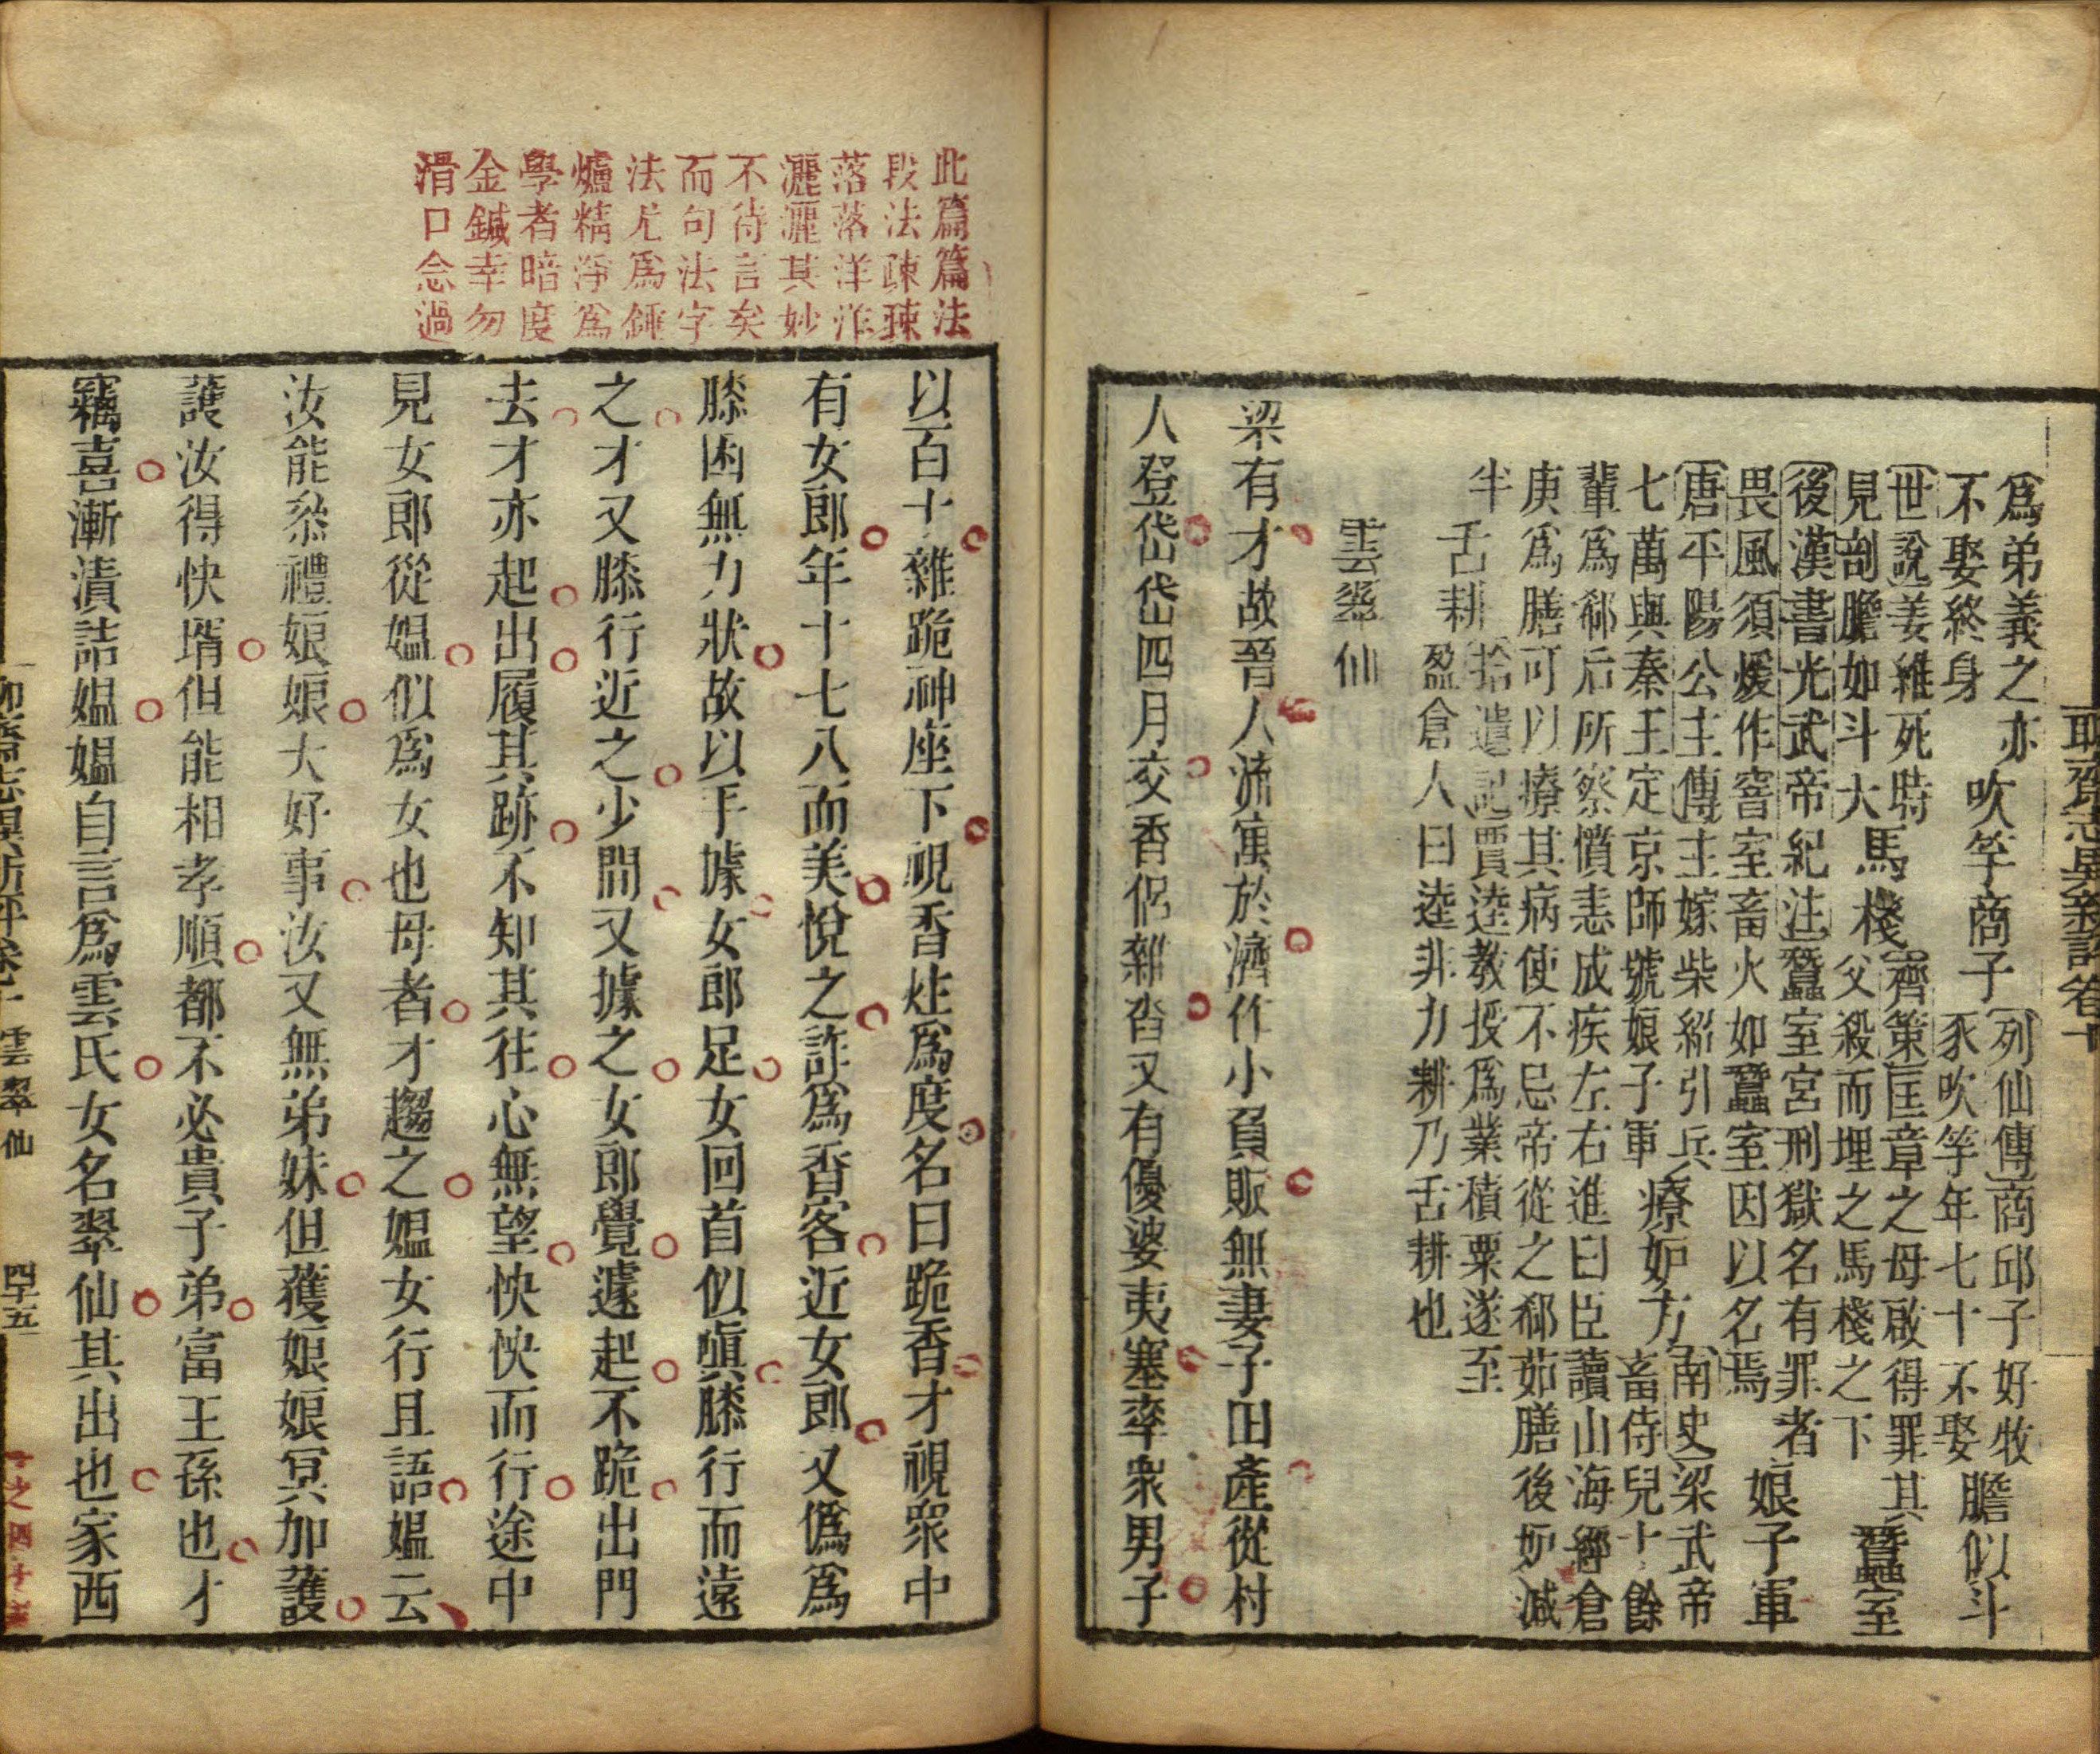 聊齋志異新評卷十
爲弟義之亦 吹竽商子〔列仙傳〕商邱子好牧
不娶終身 豕吹竽年七十不娶 膽似斗
〔世說〕姜維死時 馬棧〔齊策〕匡章之母啟得罪其
見剖膽如斗大 父殺而埋之馬棧之下 蠶室
〔後漢書光武帝紀注〕蠶室宮刑獄名有罪者
畏風須煖作窨室畜火如蠶室因以名焉 娘子軍
〔唐平陽公主傳〕主嫁柴紹引兵 療妒方〔南史〕梁武帝
七萬與秦王定京師號娘子軍 畜侍兒十餘
輩爲郗后所察憤恚成疾左右進曰臣讀山海經倉
庚爲膳可以療其病使不忌帝從之郗茹膳後妒減
半 舌耕〔拾遺記〕賈逵教授爲業積粟遂至
盈倉人曰逵非力耕乃舌耕也
雲翠仙
梁有才故晉人流寓於濟作小負販無妻子田產從村
人登岱岱四月交香侶雜沓又有優婆夷塞率衆男子
此篇篇法
段法疎疎
落落洋洋
灑灑其妙
不待言矣
而句法字
法尤爲錘
爐精淨爲
學者暗度
金鍼幸勿
滑口念過
以百十雜跪神座下視香炷爲度名曰跪香才視衆中
有女郎年十七八而美悅之詐爲香客近女郎又僞爲
膝困無力狀故以手據女郎足女回首似嗔膝行而遠
之才又膝行近之少間又據之女郎覺遽起不跪出門
去才亦起出履其跡不知其往心無望怏怏而行途中
見女郎從媼似爲女也母者才趨之媼女行且語媼云
汝能叅禮娘娘大好事汝又無弟妹但獲娘娘冥加護
護汝得快壻但能相孝順都不必貴子弟富王孫也才
竊喜漸漬詰媼媼自言爲雲氏女名翠仙其出也家西
聊齋志異新評卷十 雲翠仙 四十五